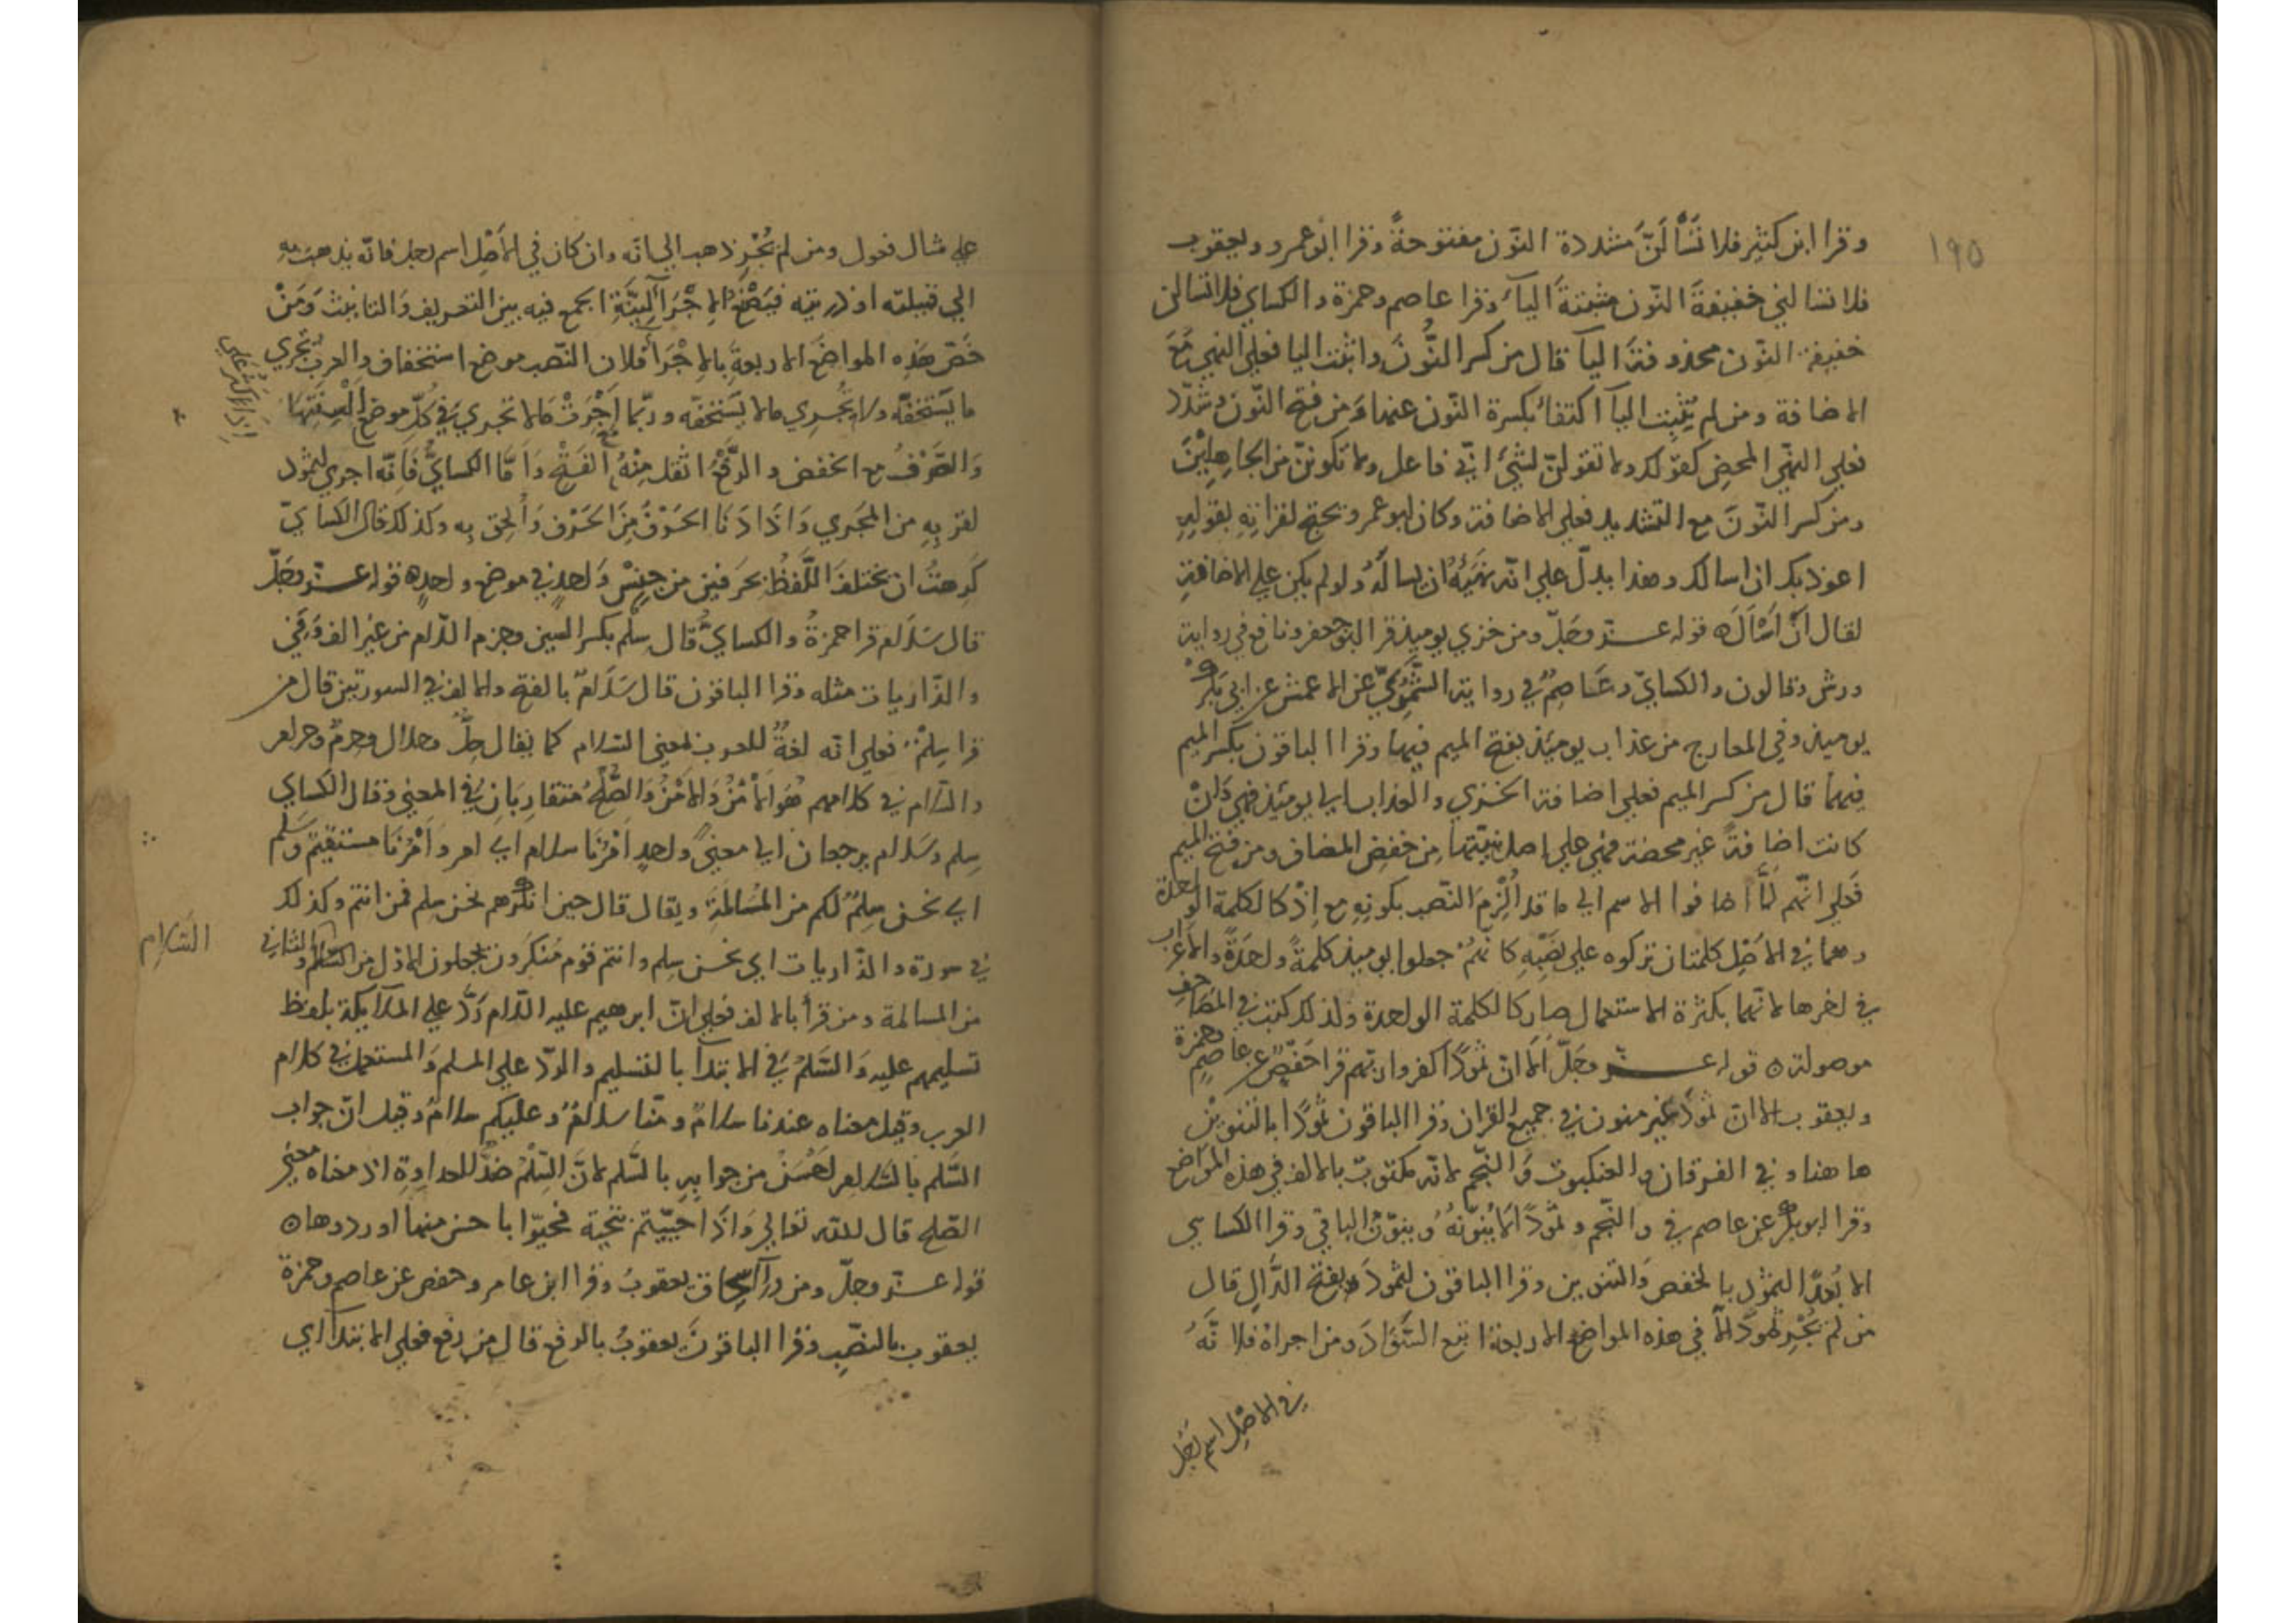 ١٩٥
وقرا ابن كثير فلا تَسْأَلَنَّ مشددة النّون مفتوحةً وقرا ابو عمرو ويعقوب
فلا تسالني خفيفةَ النّون مثبتةَ اليآء وقرا عاصم وحمزة والكساي فلا تسالن
خفيفة النّون محذوفةَ اليآ قال من كسر النُّونَ واثبت اليا فعلي النهي مَعَ
الاضافة ومن لم يُثبِت اليآ اكتفاءً بكسرة النّون عنها وَمن فتح النّون وشدّد
فعلي النهي المحضِ كقولك ولا تقولنّ لشيءٍ انّي فاعل ولا تكوننّ من الجاهِلِيْنَ
ومن كسر النّونَ مع التشديد فعلي الاضافة وكان ابو عمرو يحتج لقراتِهِ بقوله
اعوذ بك ان اسالك وهذا يدلّ علي انّه نَهَيُهُ ان يسالَهُ ولو لم يكن علي الاضافة
لقال انْ اَسْاَلَ ه قوله عزّ وجَلّ ومن خزي يوميذ قرا ابو جعفر ونافع في رواية
ورش وقالون والكسايّ وعَاصِمٌ في رواية الشَّمُّونيّ عن الاعمش عن ابي بكر
يوميذ وفي المعارج من عذاب يوميَذ بفتح الميم فيها وقرا الباقون بكسر الميم
فيهما قال من كسر الميم فعلي اضافة الخزي والعذاب الي يوميئذ فهي وَانْ
كانت اضافةً غير محضة فهي علي اصل نيّتها من خفض المضاف ومن فتح الميم
فَعلي انّهم لَمَّا اضافوا الاسم الي ما قد اُلزِمَ النّصب بكونِهِ مع اِذْ كالكلمة الواحدة
وهما في الاَصْلِ كلمتان تركوه علي نَصْبِهِ كانّهُمْ جعلوا يوميذ كلمةً واحدَةً والاعراب
في اخرها لانّهما بكثرة الاستعمال صار كالكلمة الواحدة ولذلك كتبت في المصاحف
موصولة ه قوله عزّ وجَلّ اَلَا انّ ثمودًا كفروا ربّهم قرا حَفْصٌ عن عاصم وحمزة
ويعقوب الا انّ ثمودَ غير منون في جميع القران وقرا الباقون ثمودًا بالتنوين
هاهنا وفي الفرقان والعنكبوت وَالنّجم لانّه مكتوبٌ بالالف في هذه المواضع
وقرا ابو بكر عن عاصم في والنّجم وثمودًا لا يُنوّنهُ وينوّن الباقي وقرا الكساي
الا بُعدًا لثمودٍ بالخفض وَالتنوين وقرا الباقون لثمودَ بفتح الدَّال قال
من لم يُجْرِ ثمودًا الّا في هذه المواضع الاربعة اتبع السَّوَادَ ومن اجراهُ فلانَّهُ
في الاصْل اسم رَجُل
علي مثال فعول ومن لم يُجْرِ ذهب الي انّه وان كان في الاَصْل اسم رجل فانّه يذهب به
الي قبيلته او ذرّيته فيَمْنَعُ الاِجْرَآ البِتَّةَ اجمع فيه بين التعريف وَالتانيث وَمَنْ
خَصّ هَذِه المواضعَ الاربعةَ بالاِجْرَآءِ فلان النّصب موضع استخفاف والعرب تجري
ما يَستخفّه ولا يُجْرِي ما لا يَستخفّه وربّما اَجْرَتْ ما لا تجري في كلّ موضع
وَالصّرْفُ مع الخفض والرّفعُ اثقل مِنْهُ مع الفَتْحِ وَاَمّا الكسايُّ فَانّه اجري لثمود
لقربِهِ من المجري وَاذَا دَنَا الحَرْفُ مِنَ الحَرْفِ وَاُلحق به وكذلك قال الكسايّ
كَرِهتُ ان يختلفَ اللَّفظُ بحرفين من جِنِسْ واحدٍ في موضع واحدٍ ه قوله عزّ وجَلّ
قال سَلَام قرا حمزةُ والكسايُّ قال سِلْم بكسر السين وجزم اللّام من غير الف وَفي
والذّاريات مثله وقرا الباقون قال سَلَامٌ بالفتح والالف في السورتين قال من
قرا سِلْمٌ فعلي انّه لغةٌ للعرب بمعني السّلام كما يُقال حِلٌّ وحلال وحِرْمٌ وحرام
والسّلام في كلامهم هُوَ الاَمْنُ وَالاَمْنُ وَالصُّلْحُ مُتقارِبَانِ في المعني وقال الكساي
سِلم وسَلام يرجعان الي معنيً واحدٍ اَمْرُنَا سلام اي امر وَاَمْرُنَا مستقيم وسلم
اي نحن سِلمٌ لكم من المُسَالَمَةِ ويقال قال حين انكرهم نحن سِلم فمن انتم وكذلك
في سورة والذّاريات اي نحن سِلم وانتم قوم مُنكَرُون يجعلون الاوّل من السّلام والثاني
السَّلام
من المسالمة ومن قرأ بالالف فعلي انّ ابرهيم عليه السّلام رَدَّ علي الملآيكة بلفظ
تسليمهم عليه وَالسَّلمُ في الابتدآ بالتسليم والرّدّ علي المسلم وَالمستعمل في كلام
العرب وقيل معناه عندنا سلامٌ ومنّا سلامٌ وعليكم سلامٌ وقيل انّ جواب
السَّلم بالسّلام اَحْسَنُ من جوابِهِ بالسَّلم لانَّ السِّلْمَ ضدٌّ للعداوةِ اذ معناه معني
الصّلح قال للّه تعالي وَاذَا حيّيتم بتحيّة فحيّوا باحسن منها او ردوها ه
قوله عزّ وجلّ ومن ورآء اسحاق يعقوبُ وقرا ابن عامر وحفص عن عاصم وحمزة
يعقوبَ بالنّصبِ وقرا الباقونَ يعقوبُ بالرفع قال من رفع فعلي الابتدآ اي